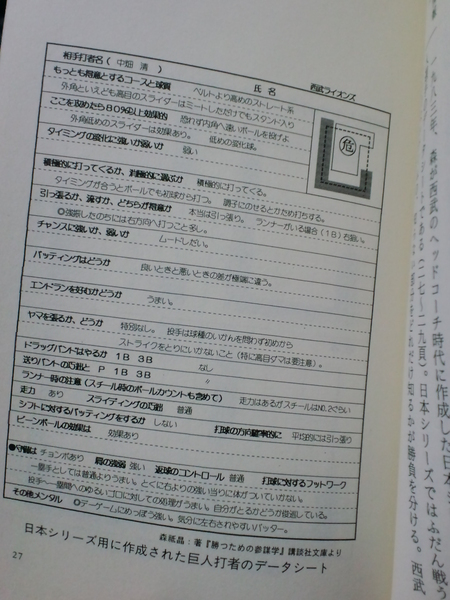 相手打者名(中畑 清)
氏 名
西武ライオンズ
もっとも得意とするコースと球質 ベルトより高めのストレート系
外角といえども高目のスライダーはミートしただけでもスタンド入り
ここを攻めたら80%以上効果的 恐れず内角へ速いボールを投げよ
外角低めのスライダーは効果あり。 低めの変化球。
タイミングの変化に強いか弱いか 弱い
危
積極的に打ってくるか、消極的に選ぶか 積極的に打ってくる。
タイミングが合うとボールでも初球から打つ。 調子にのせるとかため打ちする。
引っ張るか、流すか、どちらが得意か 本当は引っ張り。 ランナーがいる場合(1B)右狙い。
◎強振したのちには右方向へ打つこと多し。
チャンスに強いか、弱いか ムードしだい。
バッティングはどうか 良いときと悪いときの差が極端に違う。
エンドランを好むかどうか うまい。
ヤマを張るか、どうか 特別なし。 投手は球種のいかんを問わず初めから
ストライクをとりにいかないこと(特に高目ダマは要注意)。
ドラッグバントはやるか 1B 3B なし
送りバントの巧拙と P 1B 3B 〃
ランナー時の注意(スチール時のボールカウントも含めて) 走力はあるがスチールはNO.2ぐらい
走力 あり スライディングの巧拙 普通
シフトに対するバッティングをするか しない 打球の方向確率的に 平均的には引っ張り
ビーンボールの効果は 効果あり
●守備は チョンボあり 肩の強弱 強い 返球のコントロール 普通 打球に対するフットワーク
一塁手としては普通よりうまい。とくに右よりの強い当りに体がついていかない。
投手・一塁間へのゆるいゴロに対しての処理がうまい。自分がとるかどうか
その他メンタル ◎デーゲームにめっぽう強い。気分に左右されやすいバッター。
森祇晶:著『勝つための参謀学』講談社文庫より
日本シリーズ用に作成された巨人打者のデータシート
27
一九八三年、森が西武のヘッドコーチ時代に作成した日本
(二七~二九頁)。日本シリーズではふだん戦う
だけ知るかが勝負を分ける。西武